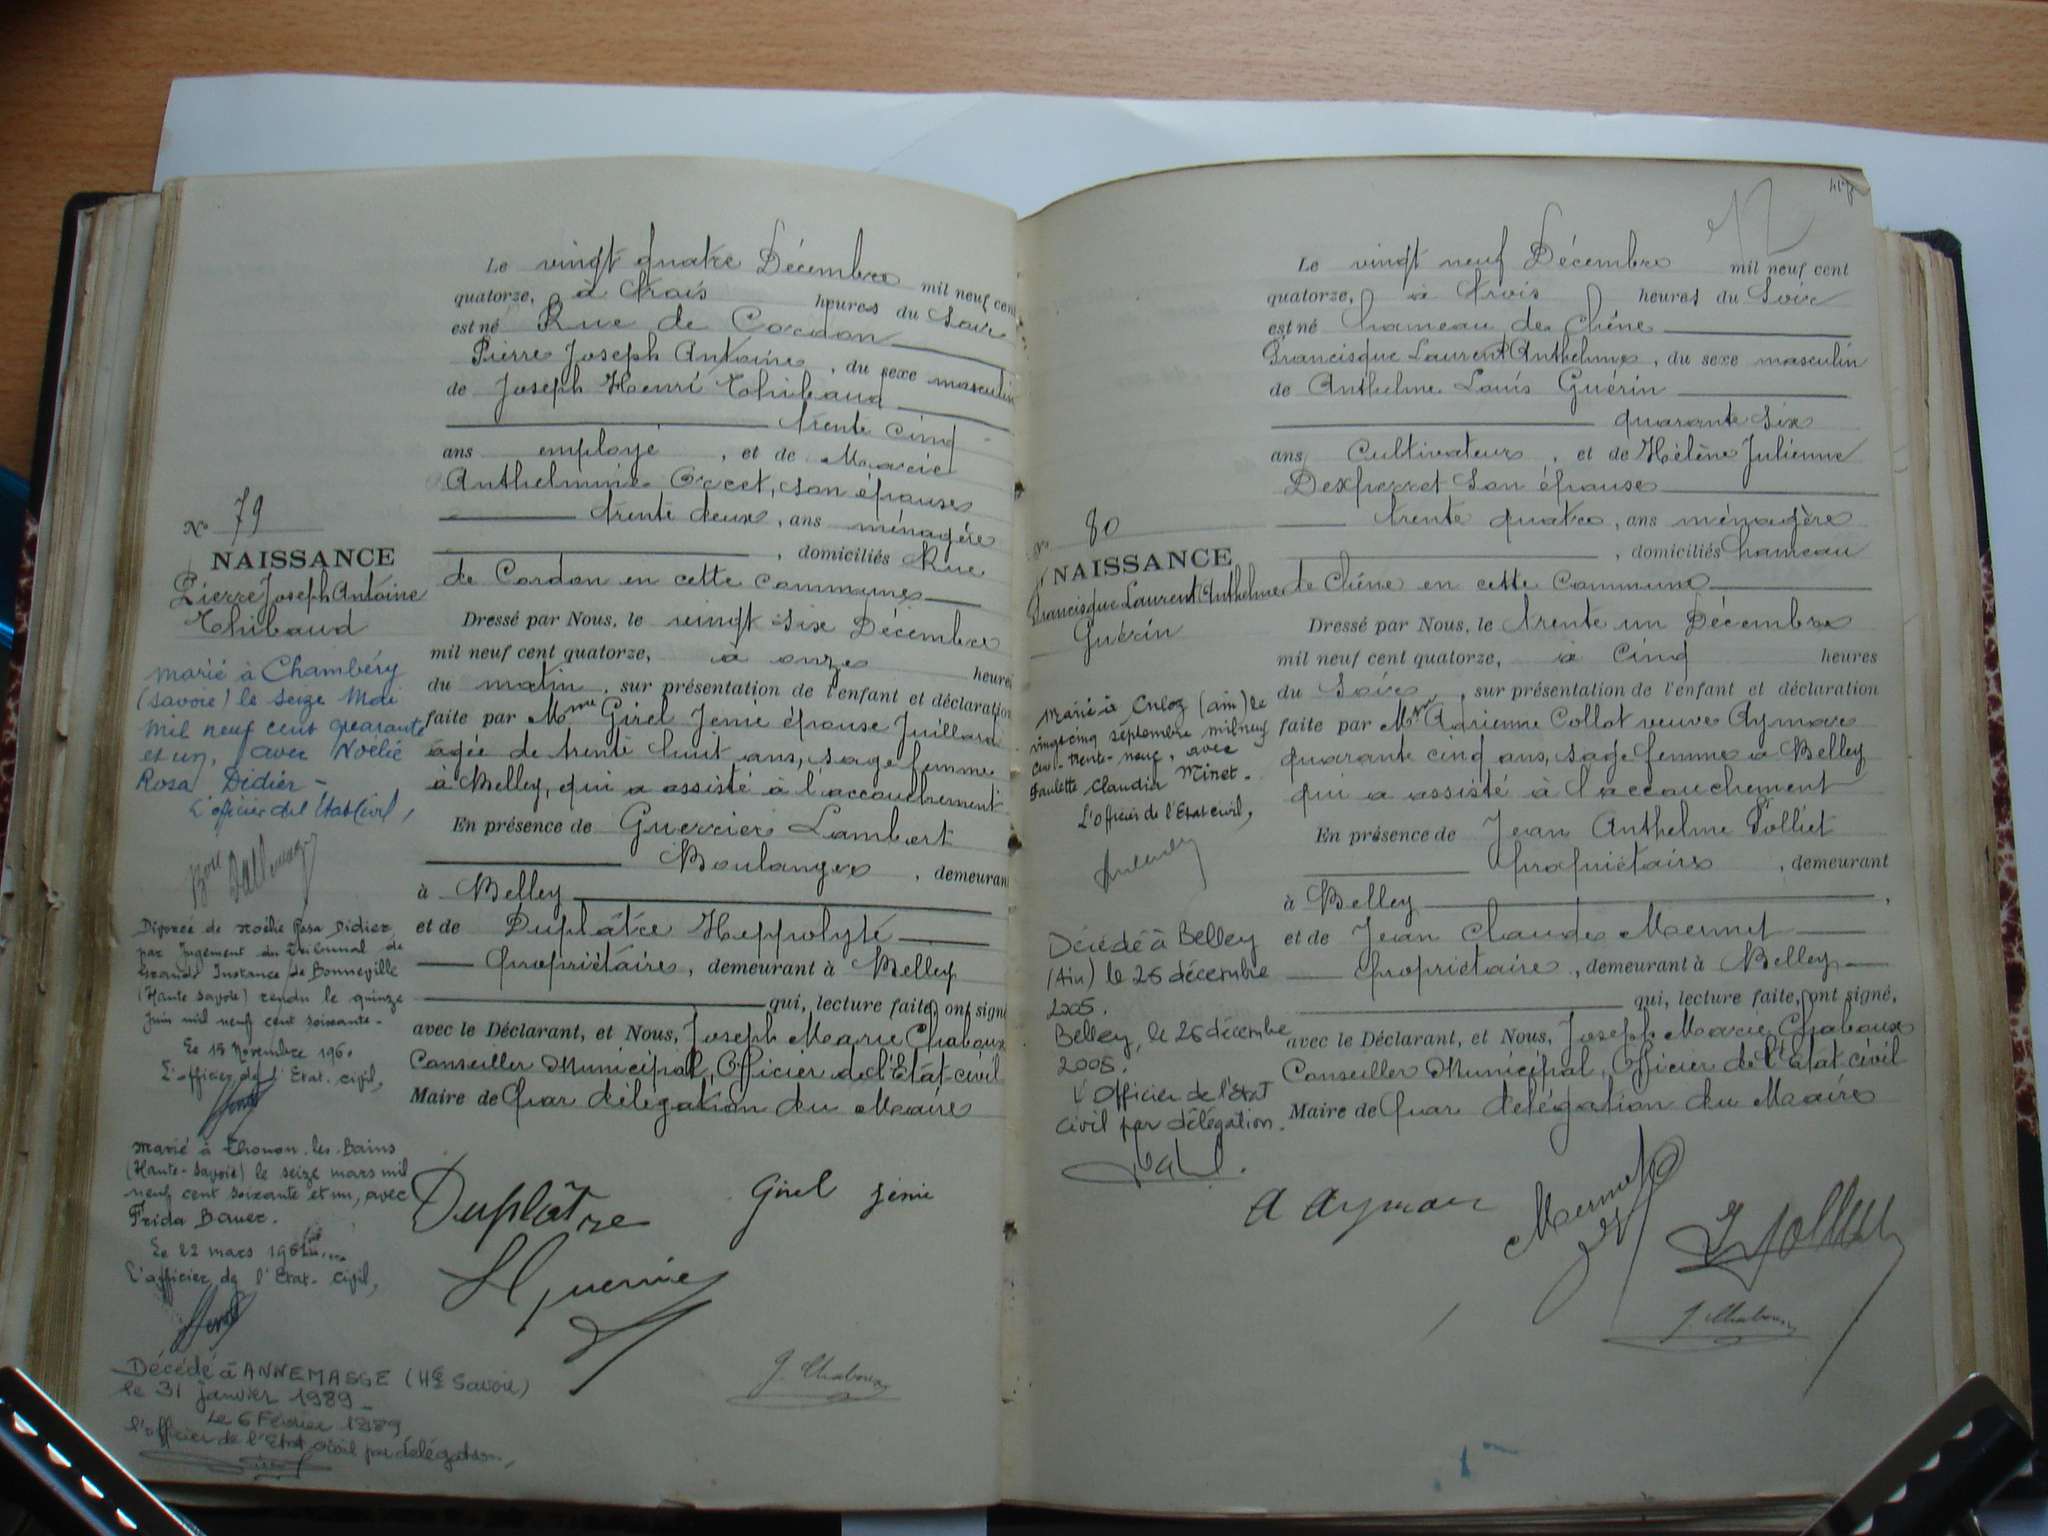 Le vingt quatre Décembre mil neuf cent
quatorze, à trois heures du Soir
est né Rue de Cordon
Pierre Joseph Antoine, du sexe masculin
de Joseph Henri Thibaud
trente cinq
ans employé, et de Marie
Anthelmine Occet, son épouse
trente deux, ans ménagère
, domiciliés Rue
de Cordon en cette commune
Dressé par Nous, le vingt six Décembre
mil neuf cent quatorze, à onze heures
du matin, sur présentation de l'enfant et déclaration
faite par Mme Girel Jenie épouse Juillard
agée de trente huit ans, sage femme
à Belley, qui a assisté à l'accouchement
En présence de Guerrier Lambert
Boulanger, demeurant
à Belley
et de Duplâtre Hyppolyte
propriétaire, demeurant à Belley
qui, lecture faite, ont signé
avec le Déclarant, et Nous, Joseph Marie Chaboux
Conseiller Municipal, Officier de l'Etat-civil
Maire de par délégation du Maire
Duplâtre
Girel Jénie
L Guerrier
J. Chaboux
No 79
NAISSANCE
Pierre Joseph Antoine
Thibaud
marié à Chambéry
(Savoie) le seize Mai
mil neuf cent quarante
et un, avec Noelie
Rosa Didier -
L'officier de l'Etat Civil,
Divorcé de Noëlie Rosa Didier
par Jugement du Tribunal de
Grande Instance de Bonneville
(Haute Savoie) rendu le quinze
juin mil neuf cent soixante -
Le 15 Novembre 1960
L'officier de l'Etat. civil,
Marié à Thonon-les-Bains
(Haute-Savoie) le seize mars mil
neuf cent soixante et un, avec
Frida Bauer.
Le 22 mars 1961
L'officier de l'Etat-civil,
Décédé à ANNEMASSE (Hte Savoie)
le 31 janvier 1989 -
Le 6 Février 1989
l'officier de l'Etat civil par délégation,
Le vingt neuf Décembre mil neuf cent
quatorze, à trois heures du Soir
est né hameau de Chêne
Francisque Laurent Anthelme, du sexe masculin
de Anthelme Louis Guérin
quarante six
ans Cultivateur, et de Hélène Julienne
Dexpierret son épouse
trente quatre, ans ménagère
, domiciliés hameau
de Chêne en cette commune
Dressé par Nous, le trente un Décembre
mil neuf cent quatorze, à cinq heures
du Soir, sur présentation de l'enfant et déclaration
faite par Me Adrienne Collot veuve Aymar
quarante cinq ans, sage femme à Belley
qui a assisté à l'accouchement
En présence de Jean Anthelme Jolliet
propriétaire, demeurant
à Belley,
et de Jean Claude Mermet
propriétaire, demeurant à Belley
qui, lecture faite, ont signé,
avec le Déclarant, et Nous, Joseph Marie Chaboux
Conseiller Municipal, Officier de l'Etat civil
Maire de par délégation du Maire
A Aymar
Mermet
J. Chaboux
No 80
NAISSANCE
Francisque Laurent Anthelme
Guérin
Marié à Culoz (Ain) le
vingt cinq septembre mil neuf
cent-trente-neuf, avec
Paulette Claudia Minet -
L'officier de l'Etat civil,
Décédé à Belley
(Ain) le 26 décembre
2005.
Belley, le 26 décembre
2005.
L'Officier de l'état
civil par délégation.